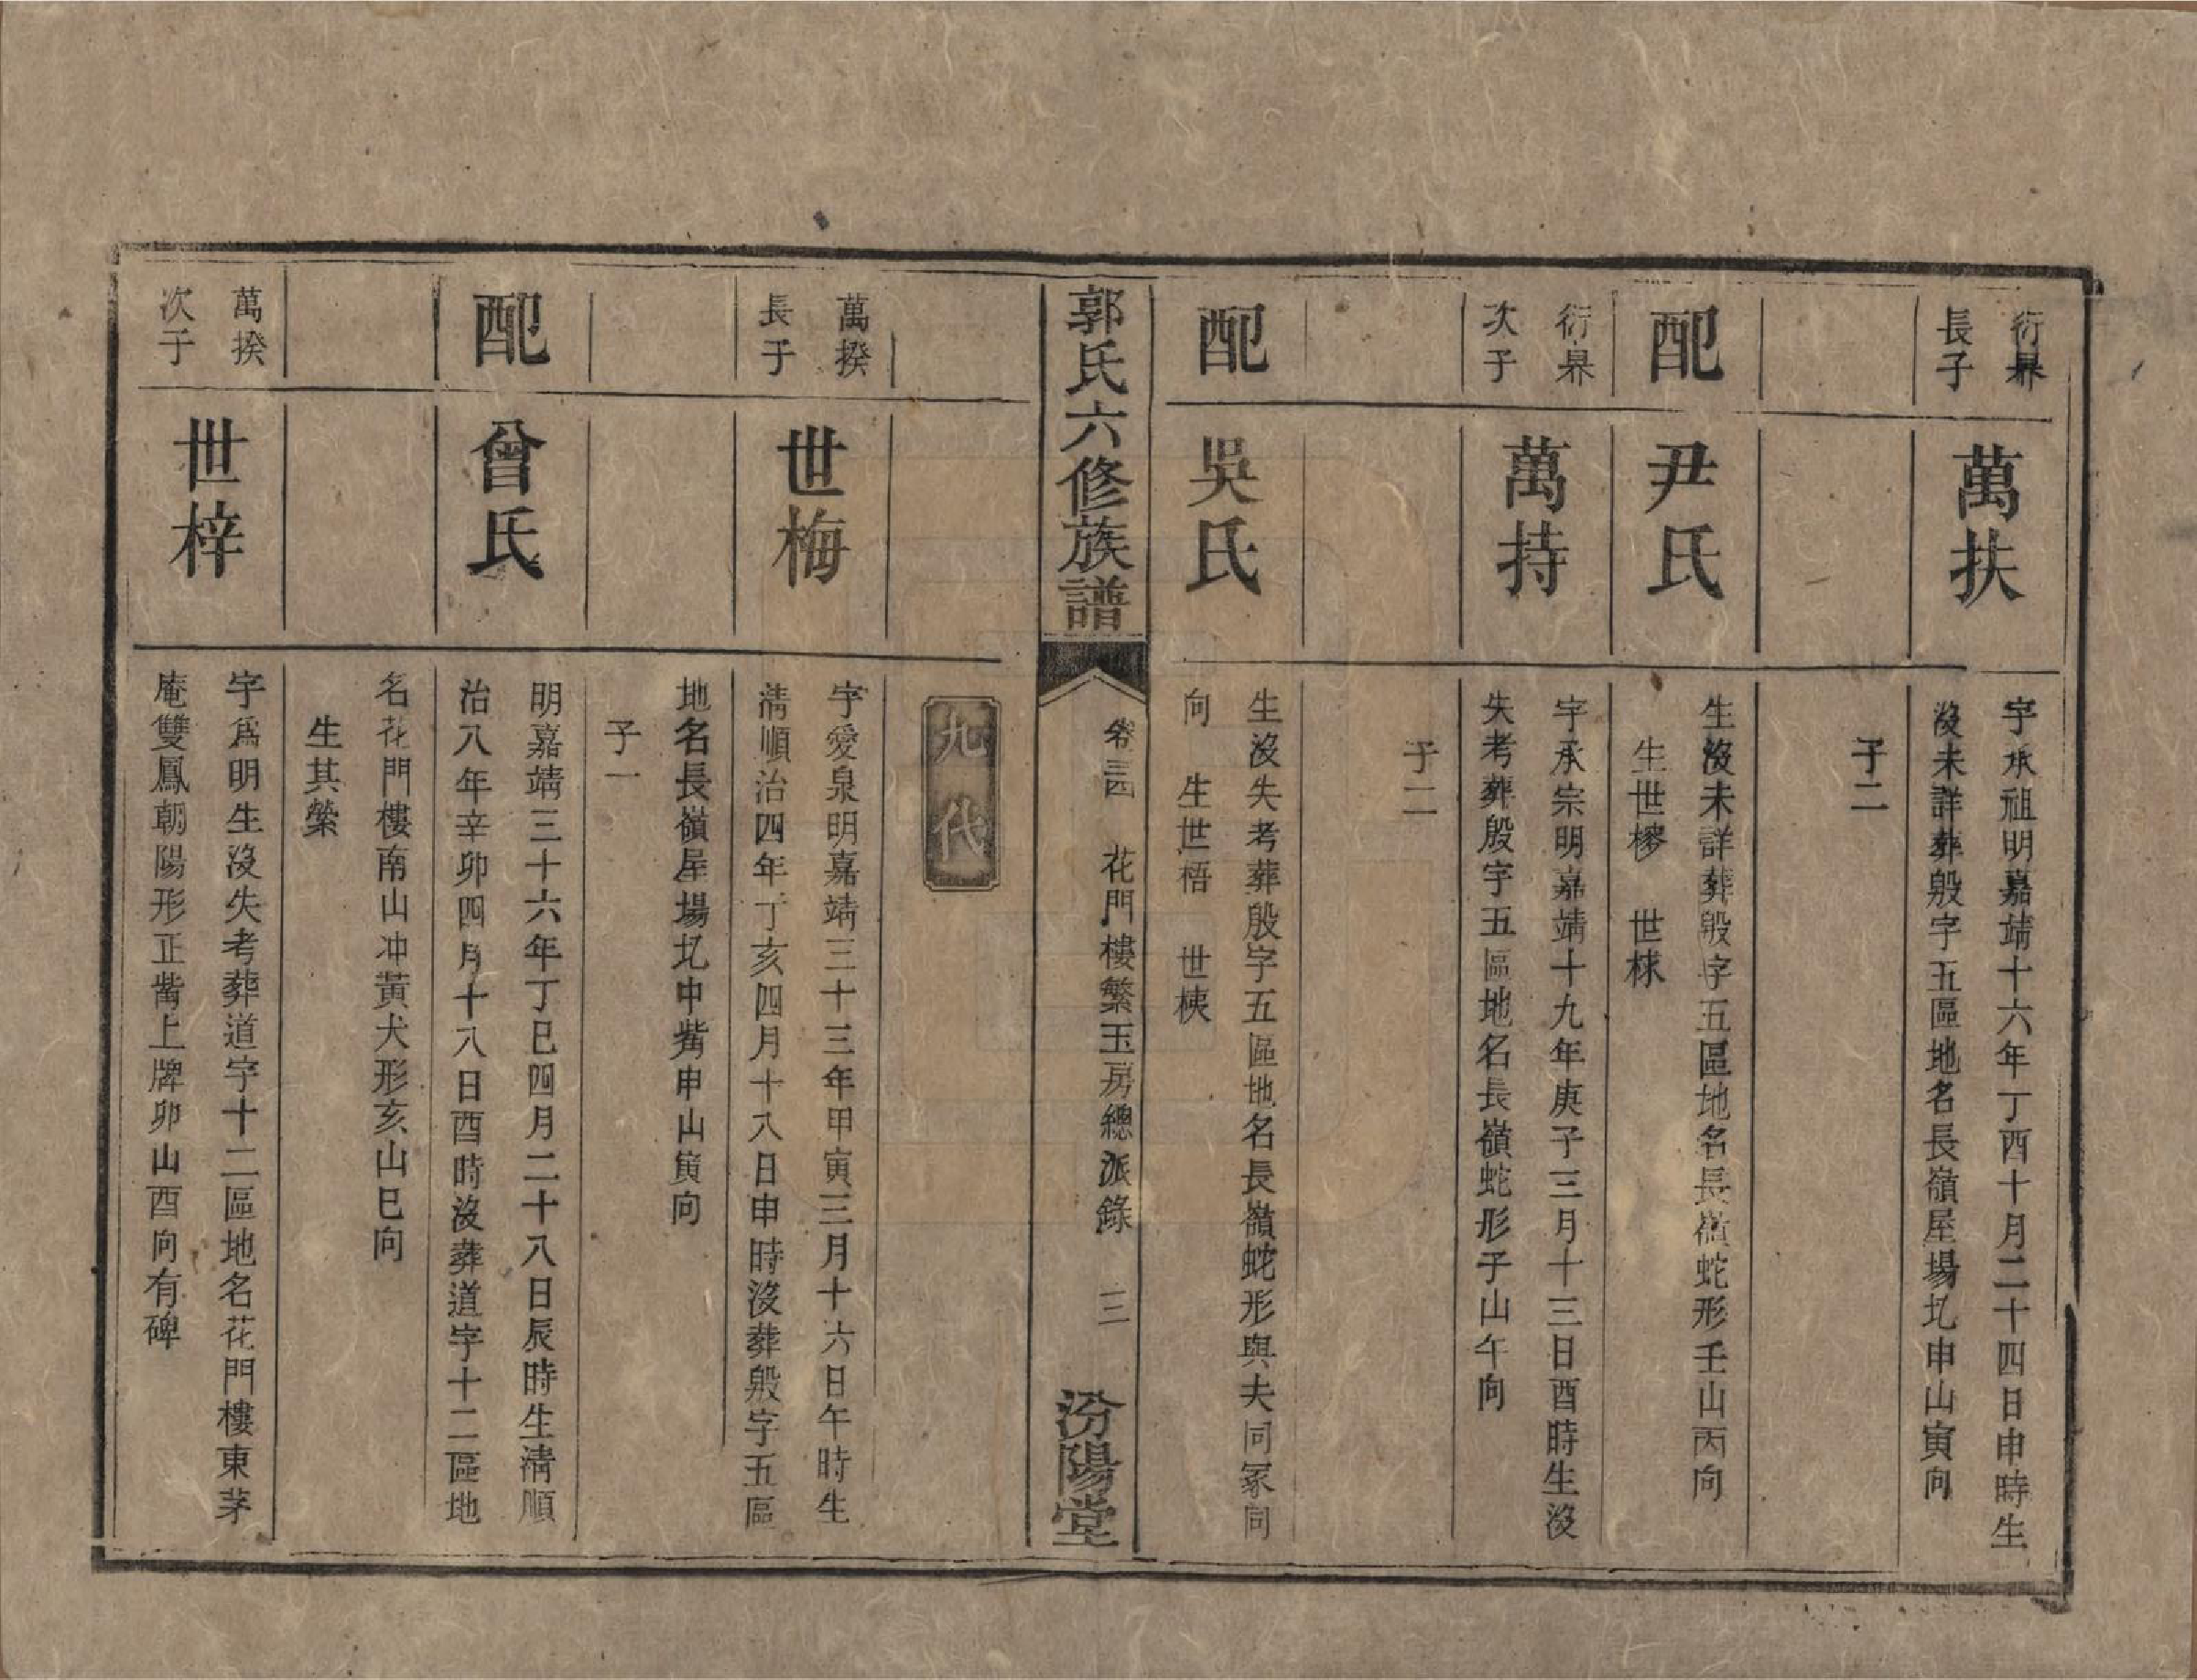 衍㬎
長子
萬扶
字承祖明嘉靖十六年丁酉十月二十四日申時生
沒未詳葬殷字五區地名長嶺屋場圠申山寅向
子二
配
尹氏
生沒未詳葬殷字五區地名長嶺蛇形壬山丙向
生世㯟 世栐
衍㬎
次子
萬持
字承宗明嘉靖十九年庚子三月十三日酉時生沒
失考葬殷字五區地名長嶺蛇形子山午向
子二
配
吳氏
生沒失考葬殷字五區地名長嶺蛇形與夫同冢同
向 生世梧 世桋
郭氏六修族譜
卷三四 花門樓繁玉房總派錄 三
汾陽堂
九代
萬揆
長子
世梅
字愛泉明嘉靖三十三年甲寅三月十六日午時生
清順治四年丁亥四月十八日申時沒葬殷字五區
地名長嶺屋場圠中觜申山寅向
子一
配
曾氏
明嘉靖三十六年丁巳四月二十八日辰時生清順
治八年辛卯四月十八日酉時沒葬道字十二區地
名花門樓南山冲黃犬形亥山巳向
生其榮
萬揆
次子
世梓
字爲明生沒失考葬道字十二區地名花門樓東茅
庵雙鳳朝陽形正觜上牌卯山酉向有碑